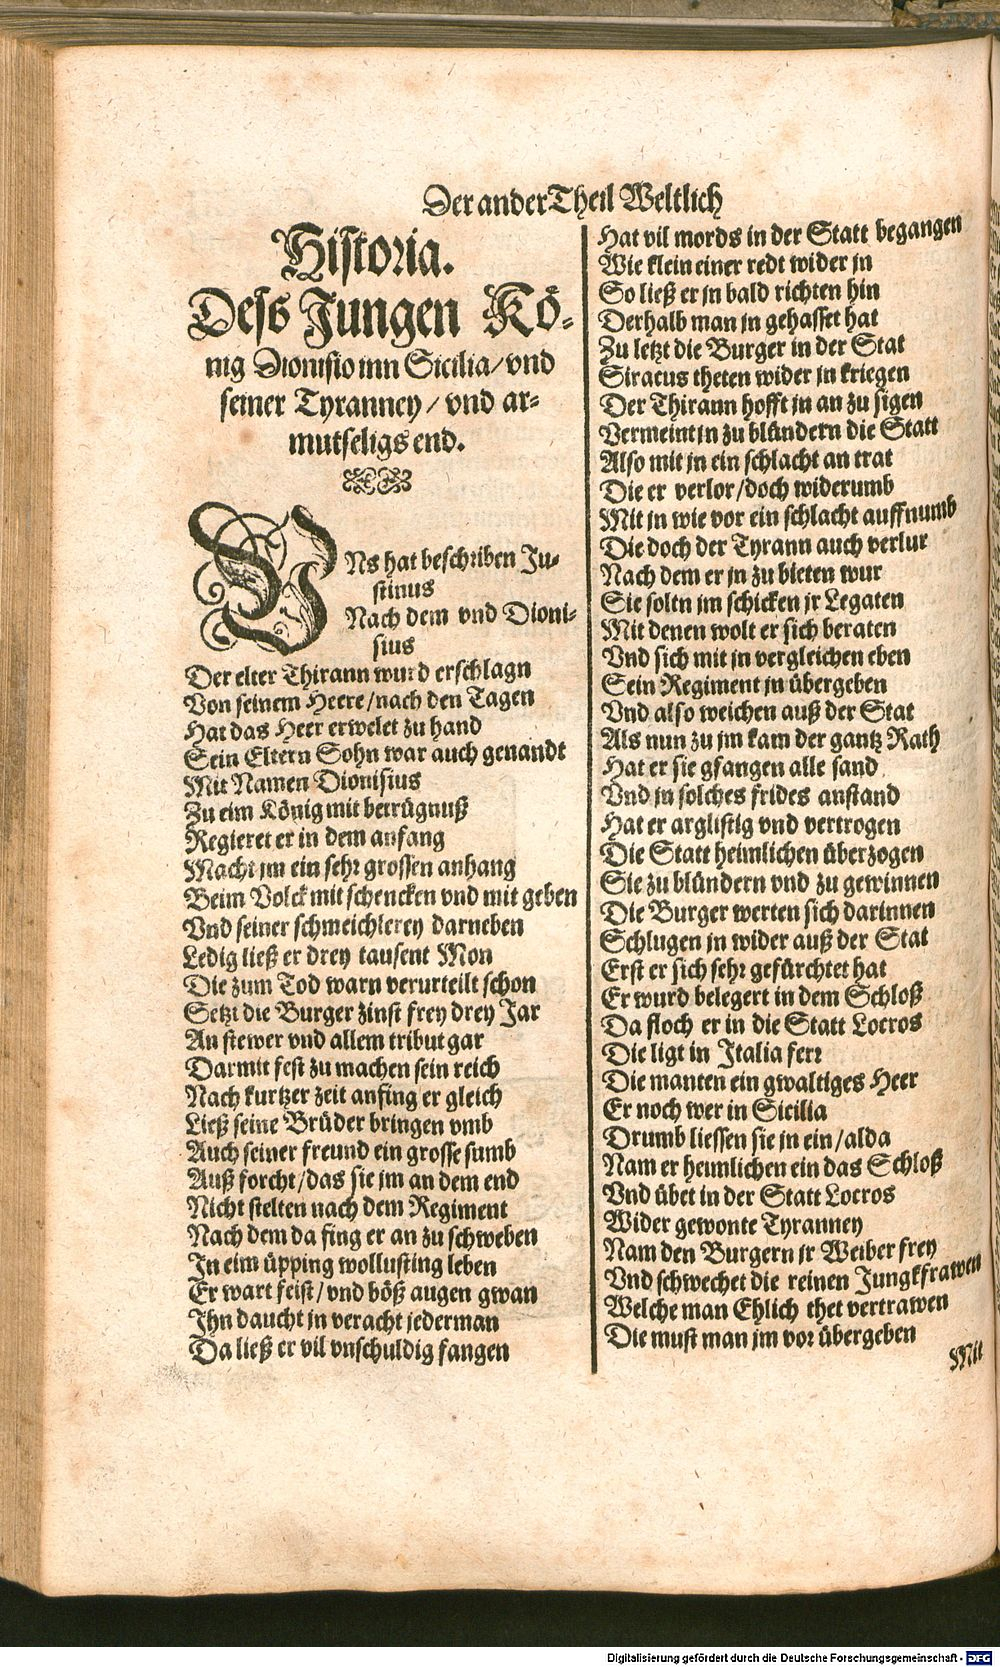 Der ander Theil Weltlich
Historia.
Deß Jungen Kö-
nig Dionisio inn Sicilia/ vnd
seiner Tyranney/ vnd ar-
mutseligs end.
VNs hat beschriben Ju-
stinus
Nach dem vnd Dioni-
sius
Der elter Thirann wurd erschlagn
Von seinem Heere/ nach den Tagen
Hat das Heer erwelet zu hand
Sein Eltern Sohn war auch genandt
Mit Namen Dionisius
Zu eim König mit betrügnuß
Regieret er in dem anfang
Macht jm ein sehr grossen anhang
Beim Volck mit schencken vnd mit geben
Vnd seiner schmeichlerey darneben
Ledig ließ er drey tausent Mon
Die zum Tod warn verurteilt schon
Setzt die Burger zinst frey drey Jar
An stewer vnd allem tribut gar
Darmit fest zu machen sein reich
Nach kurtzer zeit anfing er gleich
Ließ seine Brüder bringen vmb
Auch seiner freund ein grosse sumb
Auß forcht/ das sie jm an dem end
Nicht stelten nach dem Regiment
Nach dem da fing er an zu schweben
In eim üpping wollusting leben
Er wart feist/ vnd böß augen gwan
Ihn daucht jn veracht jederman
Da ließ er vil vnschuldig fangen
Hat vil mords in der Statt begangen
Wie klein einer redt wider jn
So ließ er jn bald richten hin
Derhalb man jn gehasset hat
Zu letzt die Burger in der Stat
Siracus theten wider jn kriegen
Der Thirann hofft jn an zu sigen
Vermeint jn zu blündern die Statt
Also mit jn ein schlacht an trat
Die er verlor/ doch widerumb
Mit jn wie vor ein schlacht auffnumb
Die doch der Tyrann auch verlur
Nach dem er jn zu bieten wur
Sie soltn jm schicken jr Legaten
Mit denen wolt er sich beraten
Vnd sich mit jn vergleichen eben
Sein Regiment jn übergeben
Vnd also weichen auß der Stat
Als nun zu jm kam der gantz Rath
Hat er sie gfangen alle sand
Vnd jn solches frides anstand
Hat er arglistig vnd vertrogen
Die Statt heimlichen überzogen
Sie zu blündern vnd zu gewinnen
Die Burger werten sich darinnen
Schlugen jn wider auß der Stat
Erst er sich sehr gefürchtet hat
Er wurd belegert in dem Schloß
Da floch er in die Statt Locros
Die ligt in Italia ferr
Die manten ein gwaltiges Heer
Er noch wer in Sicilia
Drumb liessen sie jn ein/ alda
Nam er heimlichen ein das Schloß
Vnd übet in der Statt Locros
Wider gewonte Tyranney
Nam den Burgern jr Weiber frey
Vnd schwechet die reinen Jungkfrawen
Welche man Ehlich thet vertrawen
Die must man jm vor übergeben
Mit
Digitalisierung gefördert durch die Deutsche Forschungsgemeinschaft - DFG